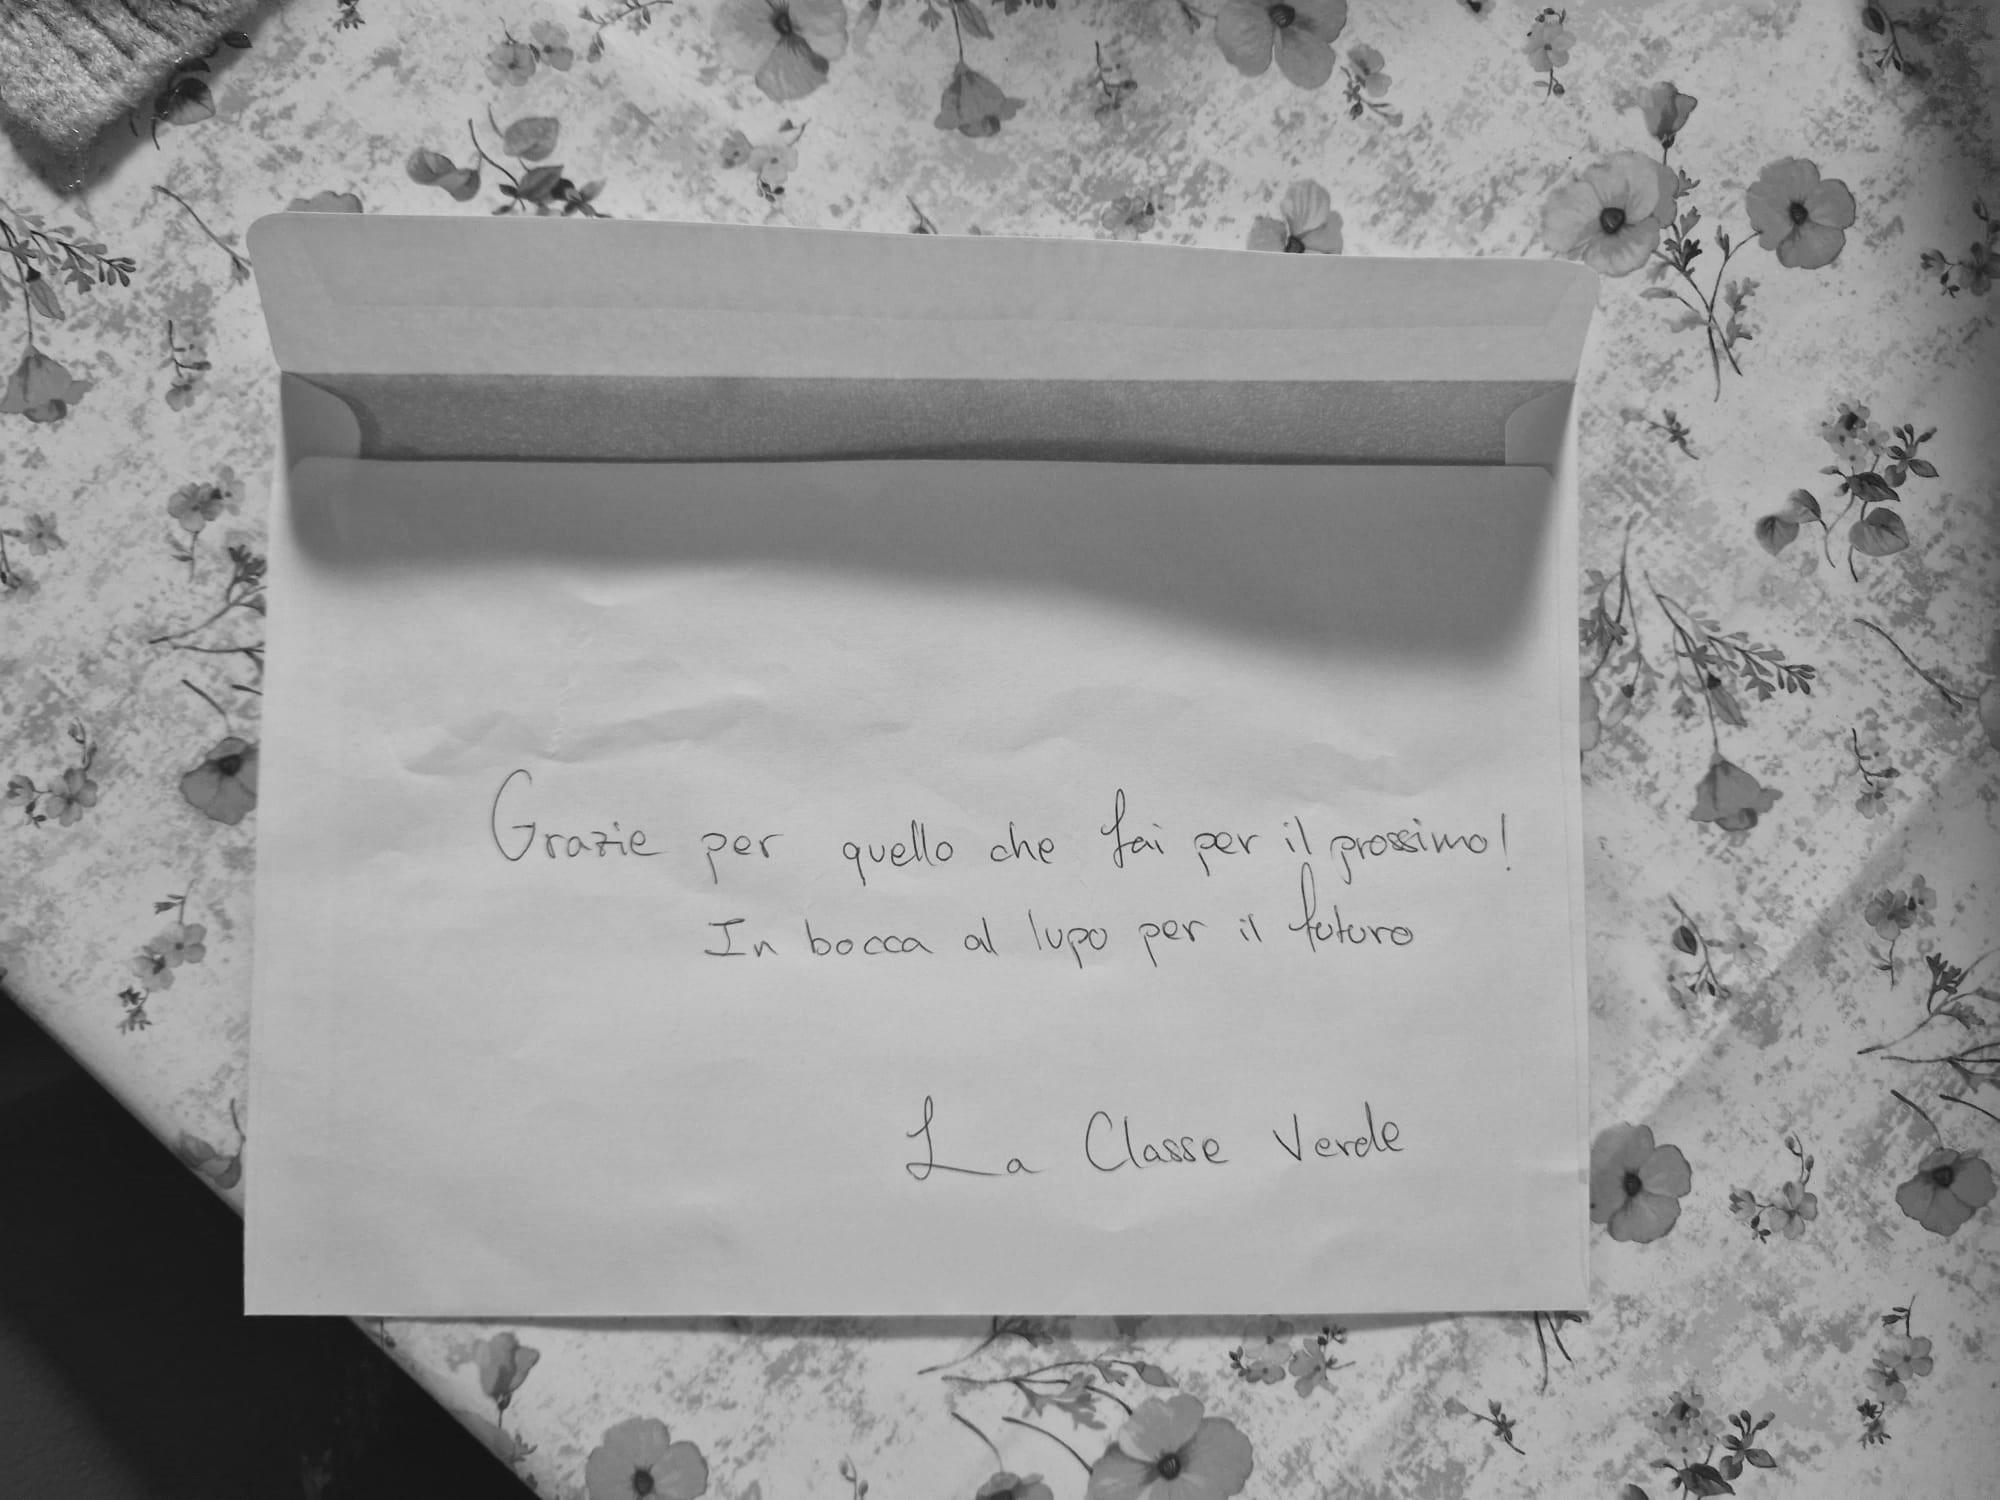 Grazie per quello che fai per il prossimo!
In bocca al lupo per il futuro
La Classe Verde